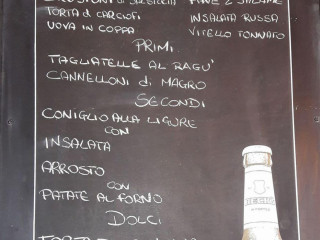 PANE & SALAME
TORTA di CARCIOFI
INSALATA RUSSA
UOVA IN COPPA
VITELLO TONNATO
PRIMI
TAGLIATELLE AL RAGU'
CANNELLONI di MAGRO
SECONDI
CONIGLIO ALLA LIGURE
CON
INSALATA
ARROSTO
CON
PATATE AL FORNO
DOLCI